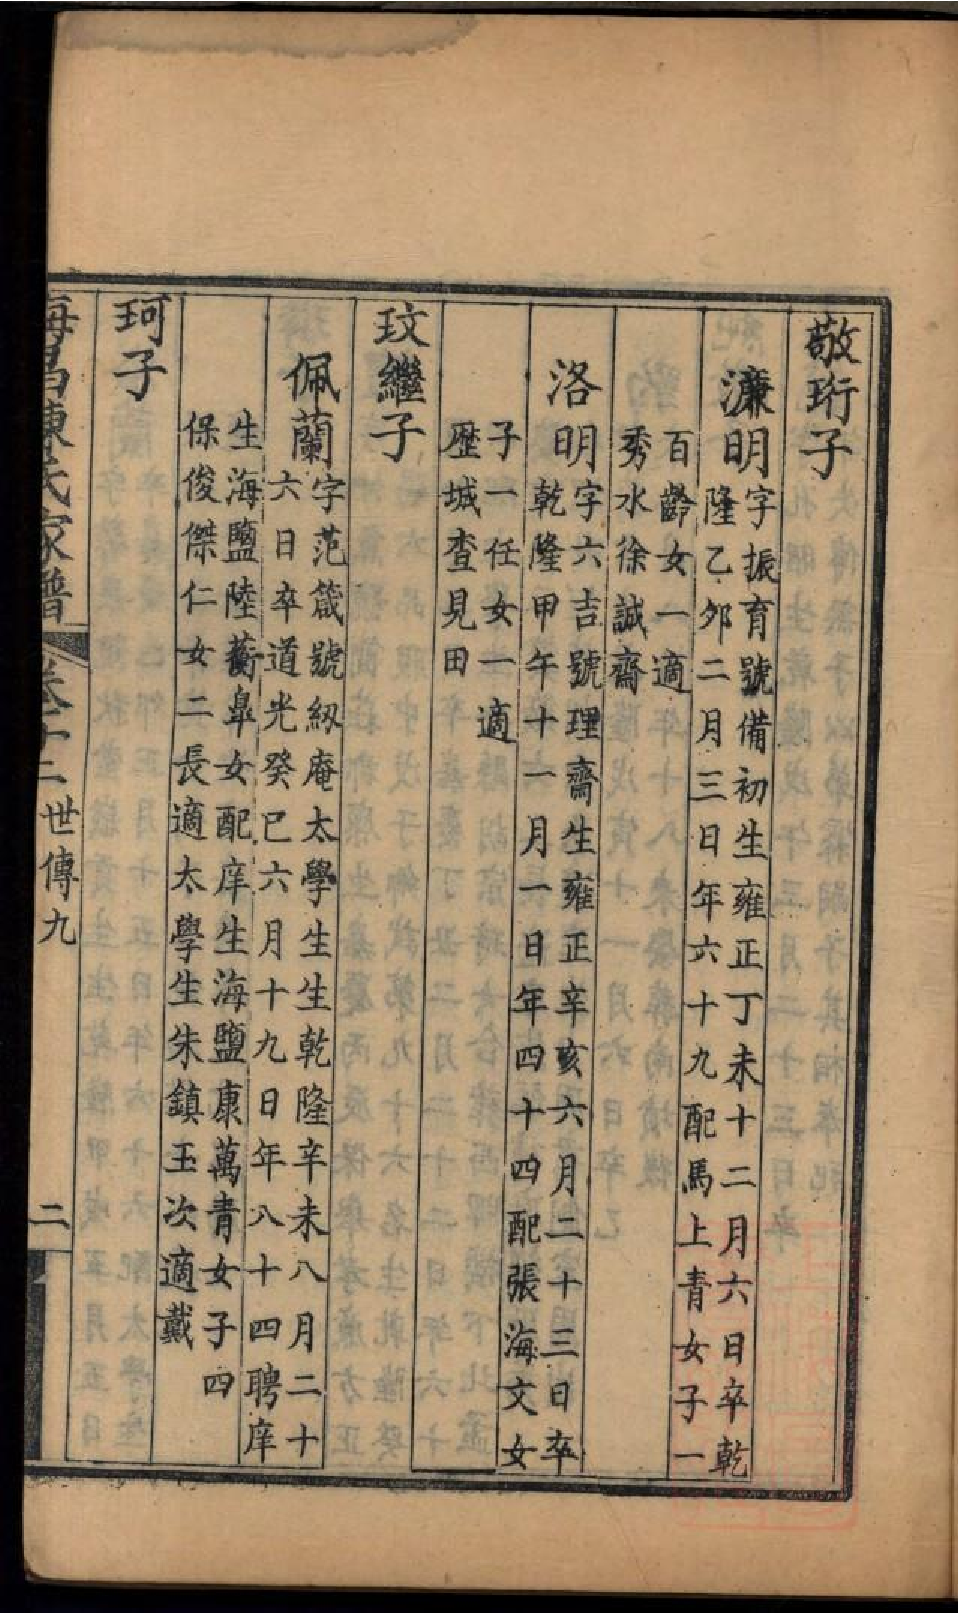 敬珩子
濂明字振育號備初生雍正丁未十二月六日卒乾
隆乙夘二月三日年六十九配馬上青女子一
百齡女一適
秀水徐誠齋
洛明字六吉號理齋生雍正辛亥六月二十三日卒
乾隆甲午十一月一日年四十四配張海文女
子一任女一適
歷城查見田
玟繼子
佩蘭字范箴號紉庵太學生生乾隆辛未八月二十
六日卒道光癸巳六月十九日年八十四聘庠
生海鹽陸蘅臯女配庠生海鹽康萬青女子四
保俊傑仁女二長適太學生朱鎮玉次適戴
珂子
海昌陳氏家譜
卷十二世傳九
二